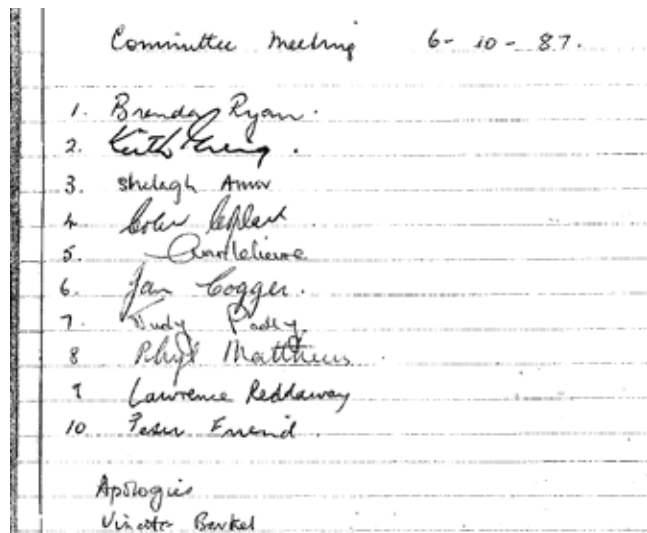 Committee Meeting 6-10-87.
1. Brenda Ryan.
2. Keith
3. Shelagh
4
5.
6. Jan Cogger.
7. Judy Padley
8 Phyl Matthews
9 Lawrence Reddaway
10. Peter Friend.
Apologies
Barkel